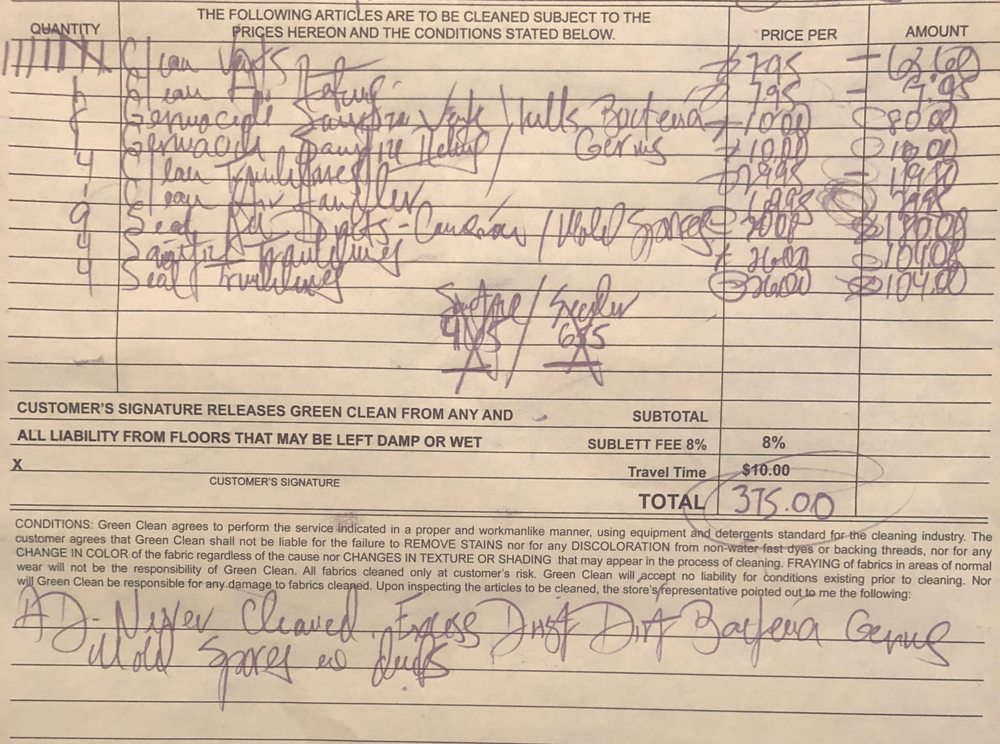 QUANTITY THE FOLLOWING ARTICLES ARE TO BE CLEANED SUBJECT TO THE PRICES HEREON AND THE CONDITIONS STATED BELOW. PRICE PER AMOUNT
Clean Vents 7.95 - 62.60
Clean Air Return 7.95 - 7.95
Germacide Sanitize Vents / Kills Bacteria 10.00 80.00
1 Germacide Sanitize Return / Germs 10.00 10.00
4 Clean Trunklines 29.95 -
Clean Air Handler
9 Seal Air Ducts - / Mold Spores 20.00 180.00
4 Sanitize Trunklines 26.00 104.00
4 Seal Trunklines 26.00 104.00
/ Sealer
CUSTOMER'S SIGNATURE RELEASES GREEN CLEAN FROM ANY AND SUBTOTAL
ALL LIABILITY FROM FLOORS THAT MAY BE LEFT DAMP OR WET SUBLETT FEE 8% 8%
X Travel Time $10.00
CUSTOMER'S SIGNATURE
TOTAL 375.00
CONDITIONS: Green Clean agrees to perform the service indicated in a proper and workmanlike manner, using equipment and detergents standard for the cleaning industry. The
customer agrees that Green Clean shall not be liable for the failure to REMOVE STAINS nor for any DISCOLORATION from non-water fast dyes or backing threads, nor for any
CHANGE IN COLOR of the fabric regardless of the cause nor CHANGES IN TEXTURE OR SHADING that may appear in the process of cleaning. FRAYING of fabrics in areas of normal
wear will not be the responsibility of Green Clean. All fabrics cleaned only at customer's risk. Green Clean will accept no liability for conditions existing prior to cleaning. Nor
will Green Clean be responsible for any damage to fabrics cleaned. Upon inspecting the articles to be cleaned, the store's representative pointed out to me the following:
AD - Never Cleaned. Excess Dust Dirt Bacteria Germs
Mold Spores in ducts